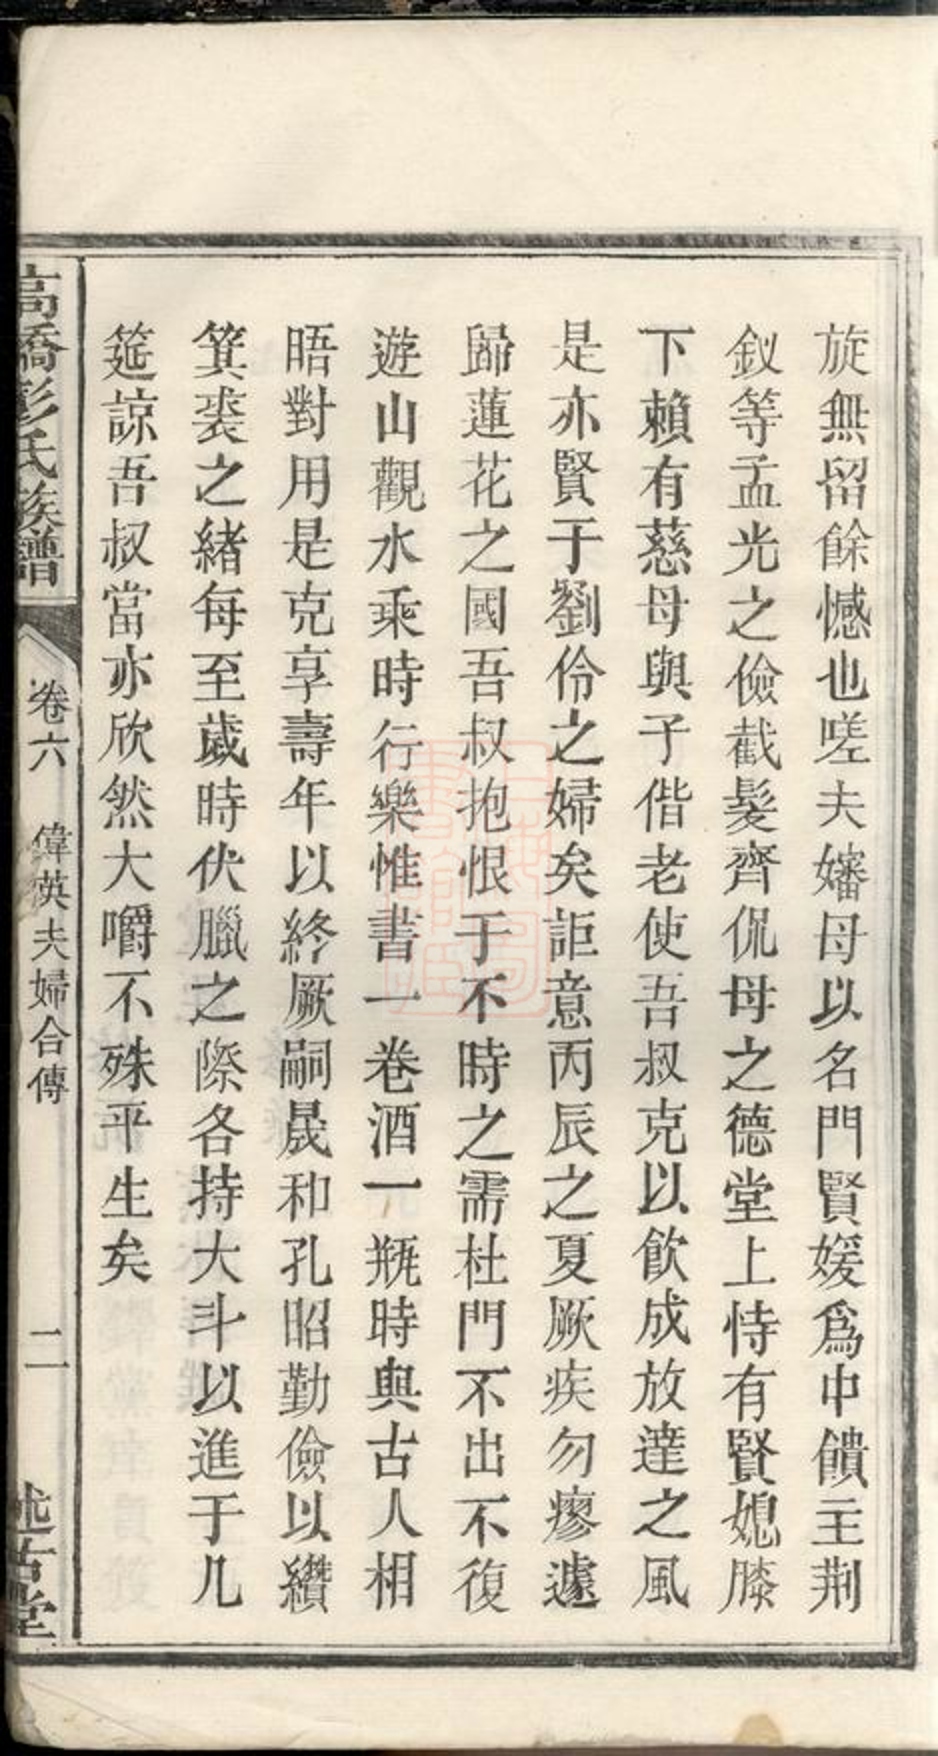 旋無留餘憾也嗟夫嬸母以名門賢媛爲中饋主荆
釵等孟光之儉截髮齊侃母之德堂上恃有賢媳膝
下賴有慈母與子偕老使吾叔克以飲成放達之風
是亦賢于劉伶之婦矣詎意丙辰之夏厥疾勿瘳遽
歸蓮花之國吾叔抱恨于不時之需杜門不出不復
遊山觀水乘時行樂惟書一卷酒一瓶時與古人相
晤對用是克享壽年以終厥嗣晟和孔昭勤儉以纘
箕裘之緒每至歲時伏臘之際各持大斗以進于几
筵諒吾叔當亦欣然大嚼不殊平生矣
高橋彭氏族譜
卷六 偉英夫婦合傳 二
述古堂